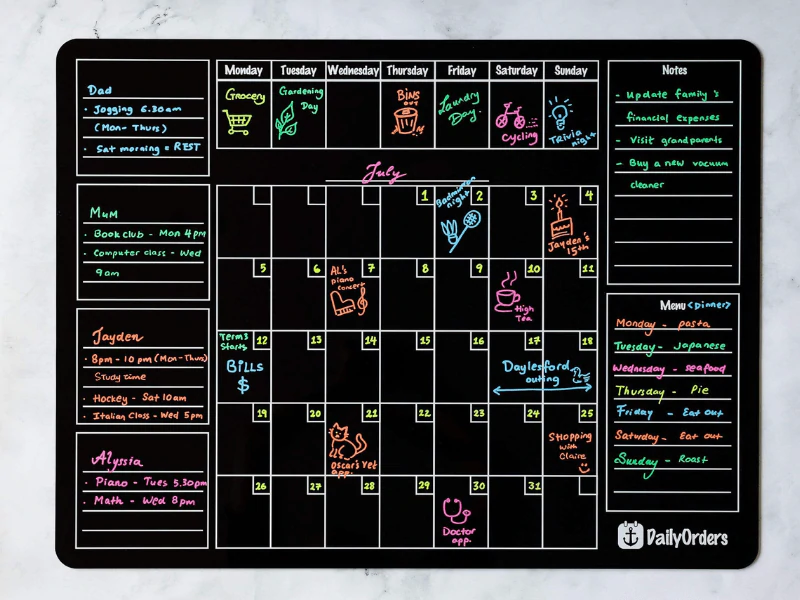 Dad
· Jogging 6.30am
(Mon-Thurs)
· Sat morning = REST
Mum
· Book club - Mon 4pm
· Computer class - Wed
9am
Jayden
· 8pm - 10pm (Mon-Thurs)
Study time
· Hockey - Sat 10am
· Italian Class - Wed 5pm
Alyssia
· Piano - Tues 5.30pm
· Math - Wed 8pm
Monday Tuesday Wednesday Thursday Friday Saturday Sunday
Grocery
Gardening
Day
BINS
OUT
Laundry
Day.
Cycling
TRIVIA
night
July
1 2 3 4
Badminton
night
Jayden's
15th
5 6 7 8 9 10 11
AL's
piano
concert
High
Tea
12 13 14 15 16 17 18
Term 3
Starts
BILLS
$
Daylesford
outing
19 20 21 22 23 24 25
Oscar's Vet
app.
SHOPPING
with
Claire
26 27 28 29 30 31
Doctor
app.
Notes
- Update family's
financial expenses
- Visit grandparents
- Buy a new vacuum
cleaner
Menu <Dinner>
Monday - pasta
Tuesday - Japanese
Wednesday - seafood
Thursday - Pie
Friday - Eat out
Saturday - Eat out
Sunday - Roast
DailyOrders